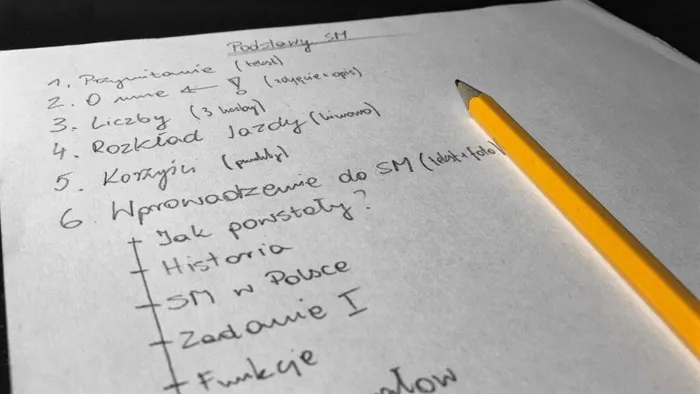 Podstawy SM
1. Przywitanie (tekst)
2. O mnie ← ! (zdjęcie + opis)
3. Liczby (3 liczby)
4. Rozkład Jazdy (kinowo)
5. Korzyści (punkty)
6. Wprowadzenie do SM (tekst + foto)
Jak powstały?
Historia
SM w Polsce
Zadanie I
Funkcje